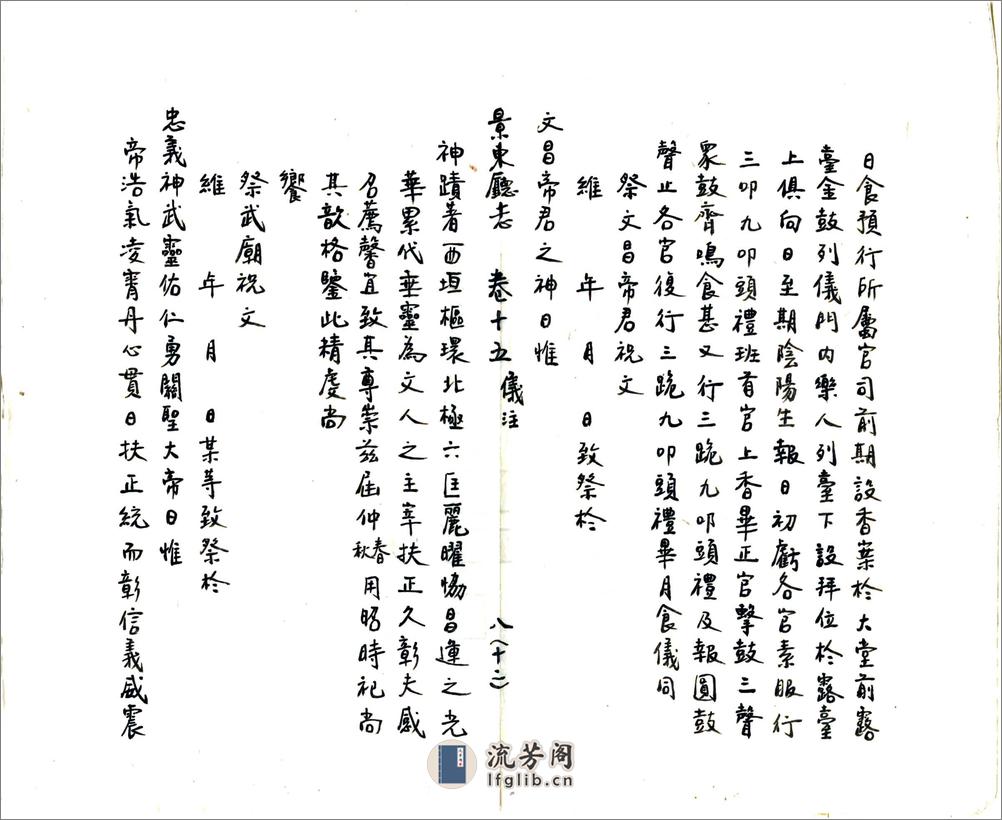 日食預行所屬官司前期設香案於大堂前露
臺金鼓列儀門內樂人列臺下設拜位於露臺
上俱向日至期陰陽生報日初虧各官素服行
三叩九叩頭禮班首官上香畢正官擊鼓三聲
眾鼓齊鳴食甚又行三跪九叩頭禮及報圓鼓
聲止各官復行三跪九叩頭禮畢月食儀同
祭文昌帝君祝文
維 年 月 日致祭於
文昌帝君之神曰惟
景東廳志 卷十五 儀注 八(十二)
神蹟著西垣樞環北極六匡麗曜協昌運之光
華累代垂靈為文人之主宰扶正久彰夫感
召薦馨宜致其專崇茲屆仲春秋用昭時祀尚
其歆格鑒此精虔尚
饗
祭武廟祝文
維 年 月 日某等致祭於
忠義神武靈佑仁勇關聖大帝曰惟
帝浩氣凌霄丹心貫日扶正統而彰信義威震
流芳阁
lfglib.cn